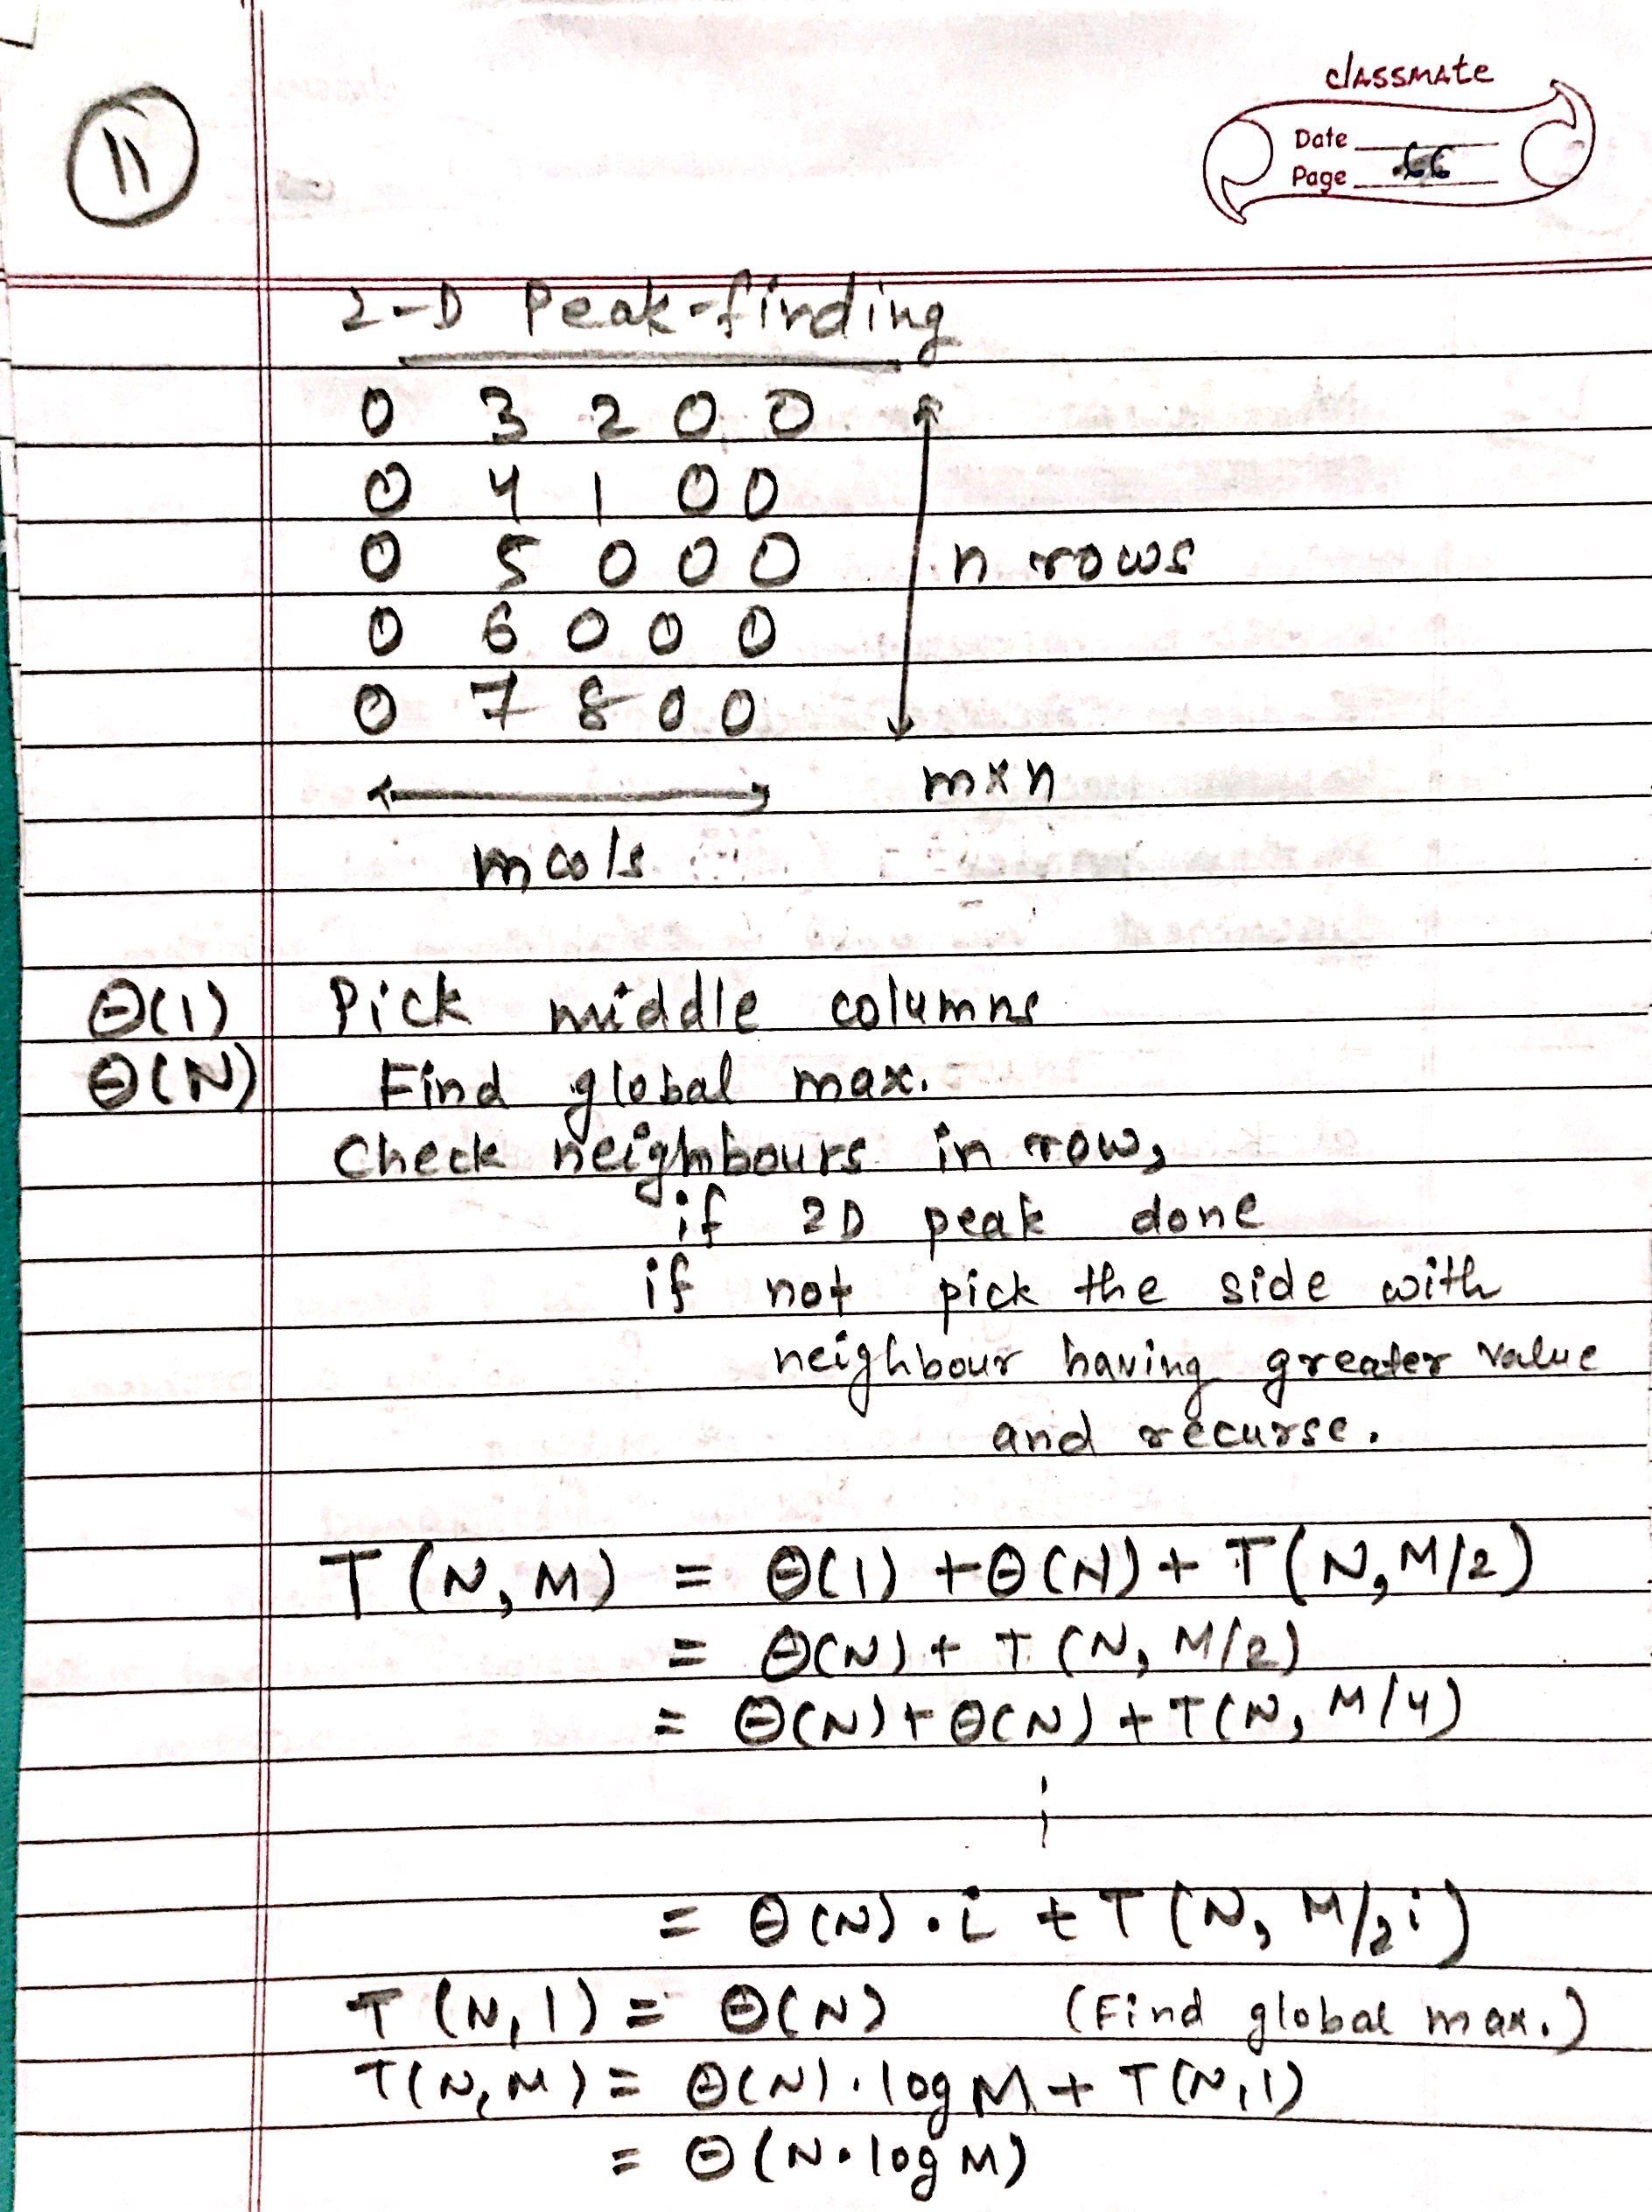 11
classmate
Date
Page 66
2-D Peak-finding
0 3 2 0 0
0 4 1 0 0
0 5 0 0 0
n rows
0 6 0 0 0
0 7 8 0 0
m×n
m cols
Θ(1) Pick middle columns
Θ(N) Find global max.
Check neighbours in row,
if 2D peak done
if not pick the side with
neighbour having greater value
and recurse.
T(N,M) = Θ(1) + Θ(N) + T(N, M/2)
= Θ(N) + T(N, M/2)
= Θ(N) + Θ(N) + T(N, M/4)
⋮
= Θ(N)·i + T(N, M/2i)
T(N,1) = Θ(N) (Find global max.)
T(N,M) = Θ(N)·log M + T(N,1)
= Θ(N·log M)